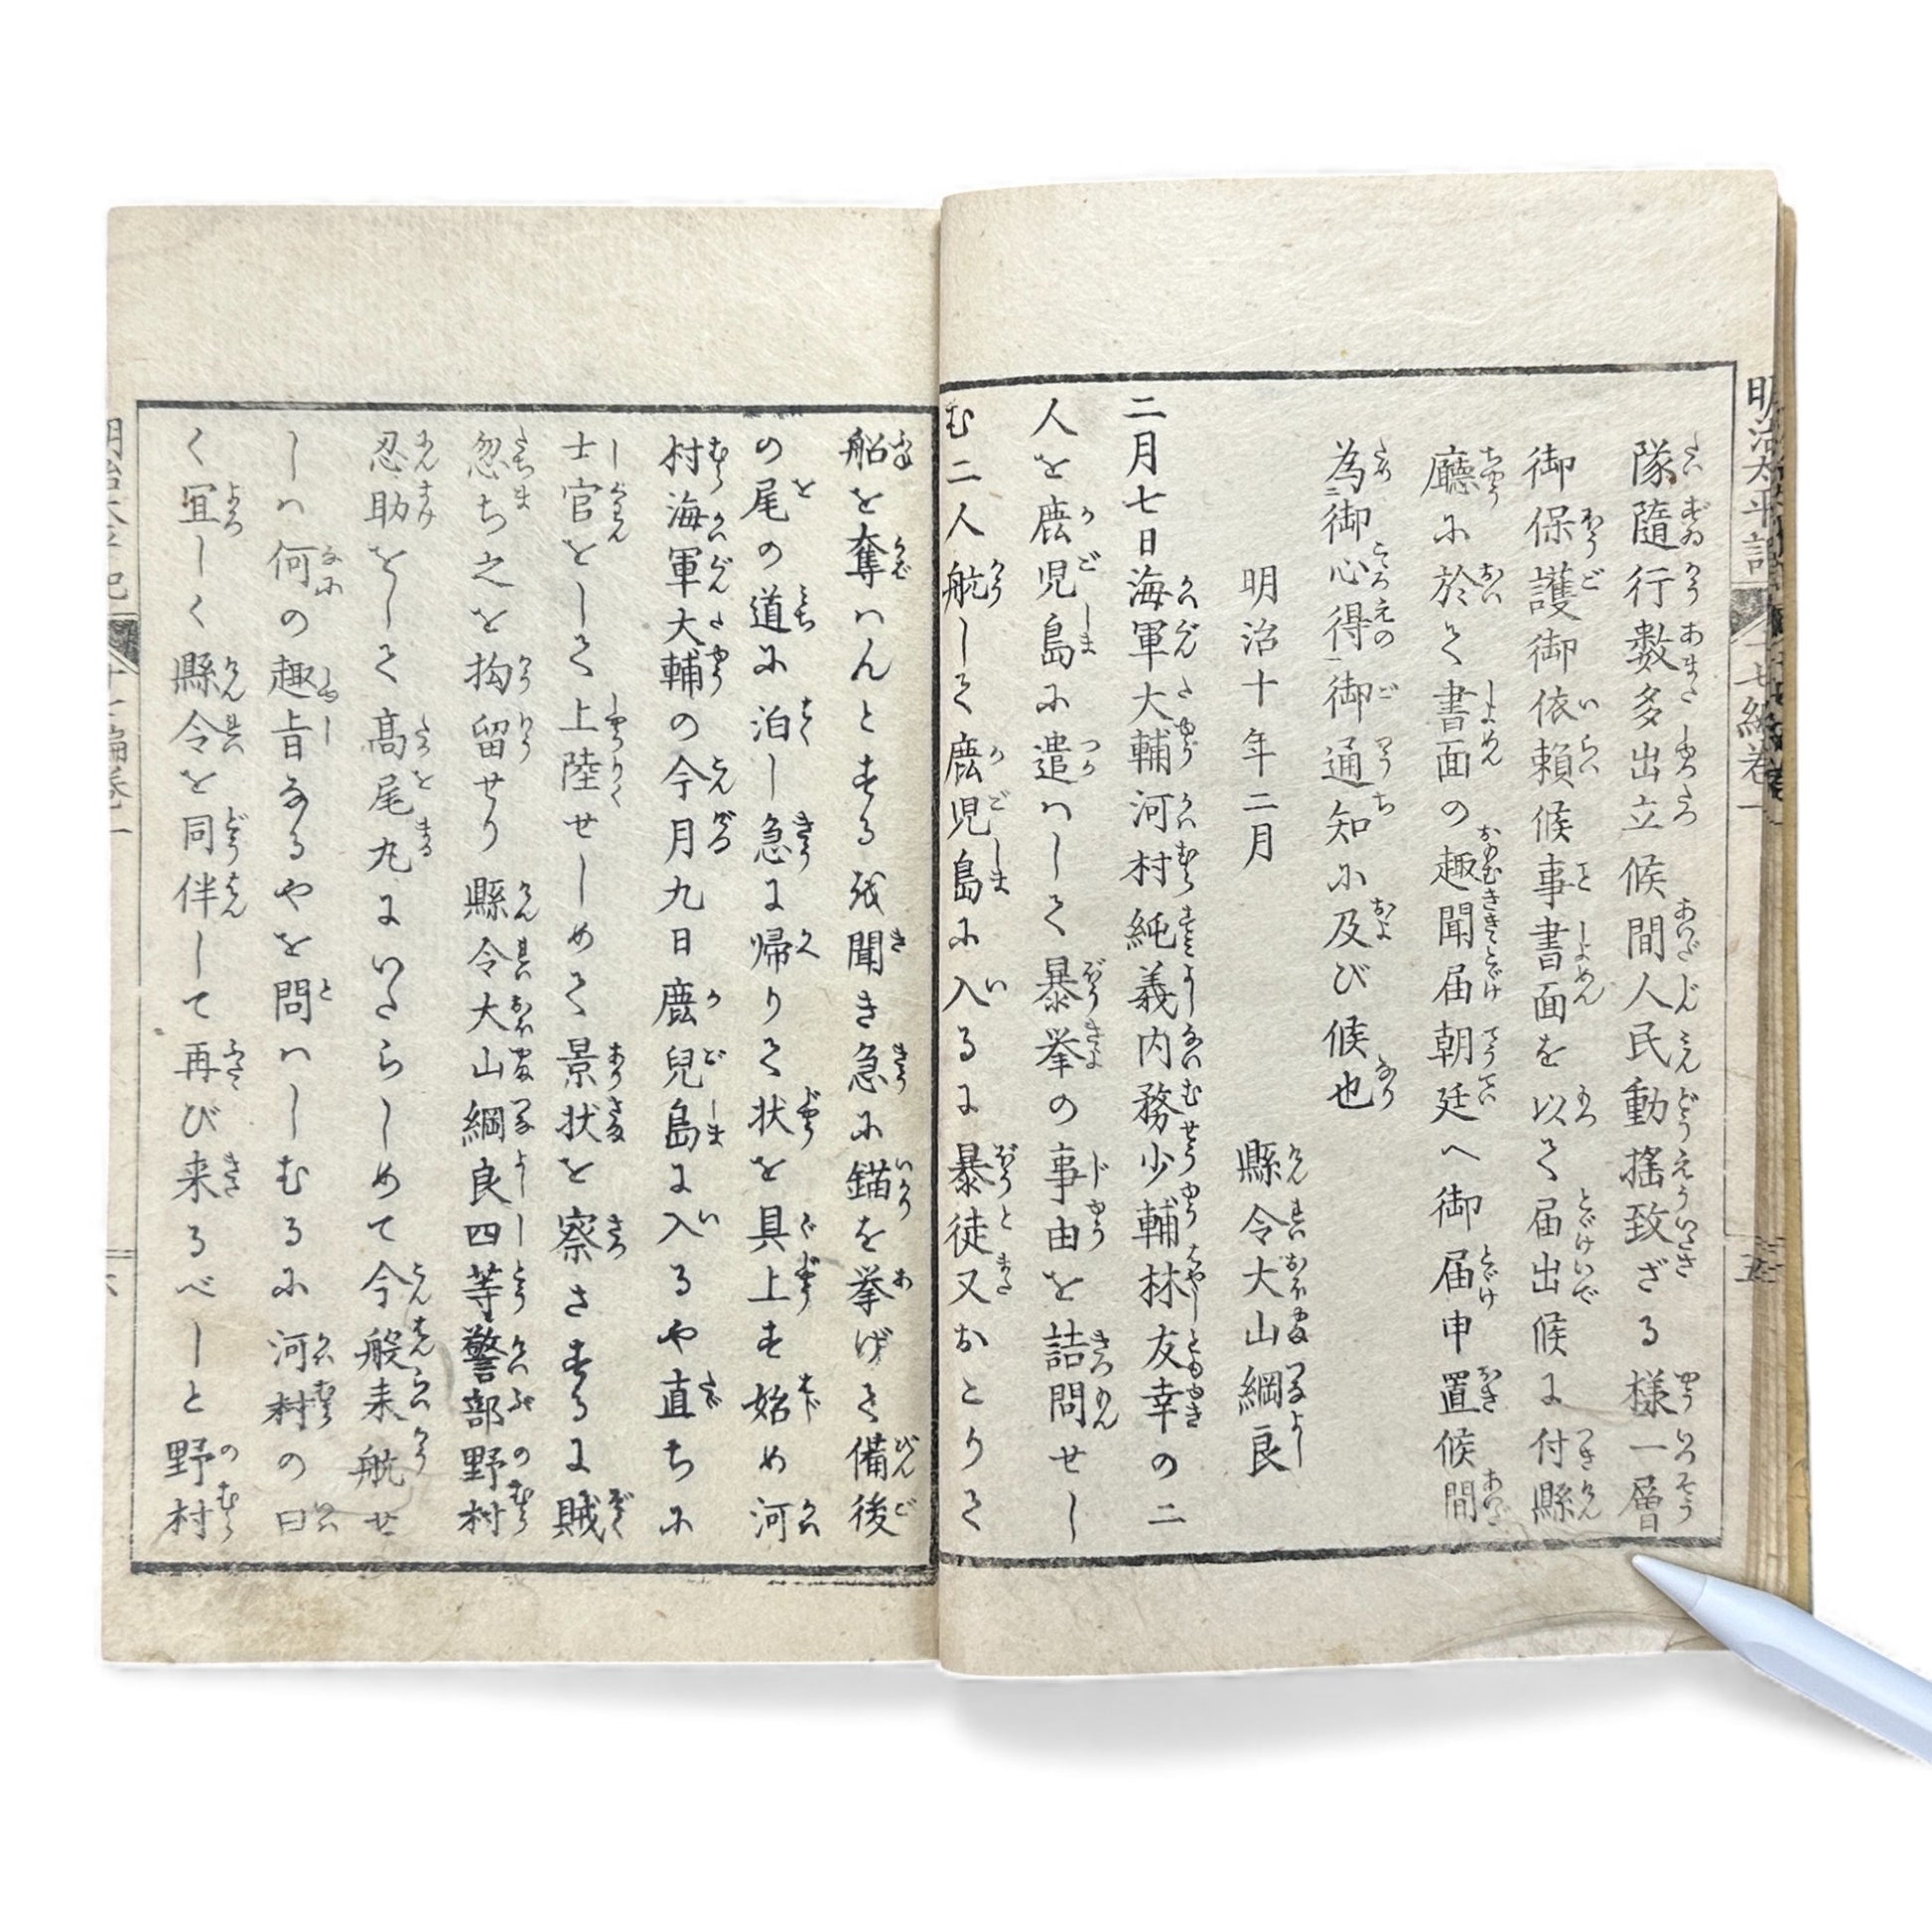 明治太平記 十七編巻一 五
隊隨行数多出立候間人民動揺致ざる様一層
御保護御依頼候事書面を以て届出候に付縣
廳に於て書面の趣聞届朝廷へ御届申置候間
為御心得御通知に及び候也
明治十年二月
縣令大山綱良
二月七日海軍大輔河村純義内務少輔林友幸の二
人を鹿児島に遣ハして暴挙の事由を詰問せし
む二人航して鹿児島に入るに暴徒又おとりて
船を奪ハんとする状聞き急に錨を挙げて備後
の尾の道に泊し急に帰りて状を具上す始め河
村海軍大輔の今月九日鹿兒島に入るや直ちに
士官をして上陸せしめて景状を察さするに賊
忽ち之を拘留せり縣令大山綱良四等警部野村
忍助をして高尾丸にいたらしめて今般来航せ
しハ何の趣旨なるやを問ハしむるに河村の曰
く宜しく縣令を同伴して再び来るべしと野村